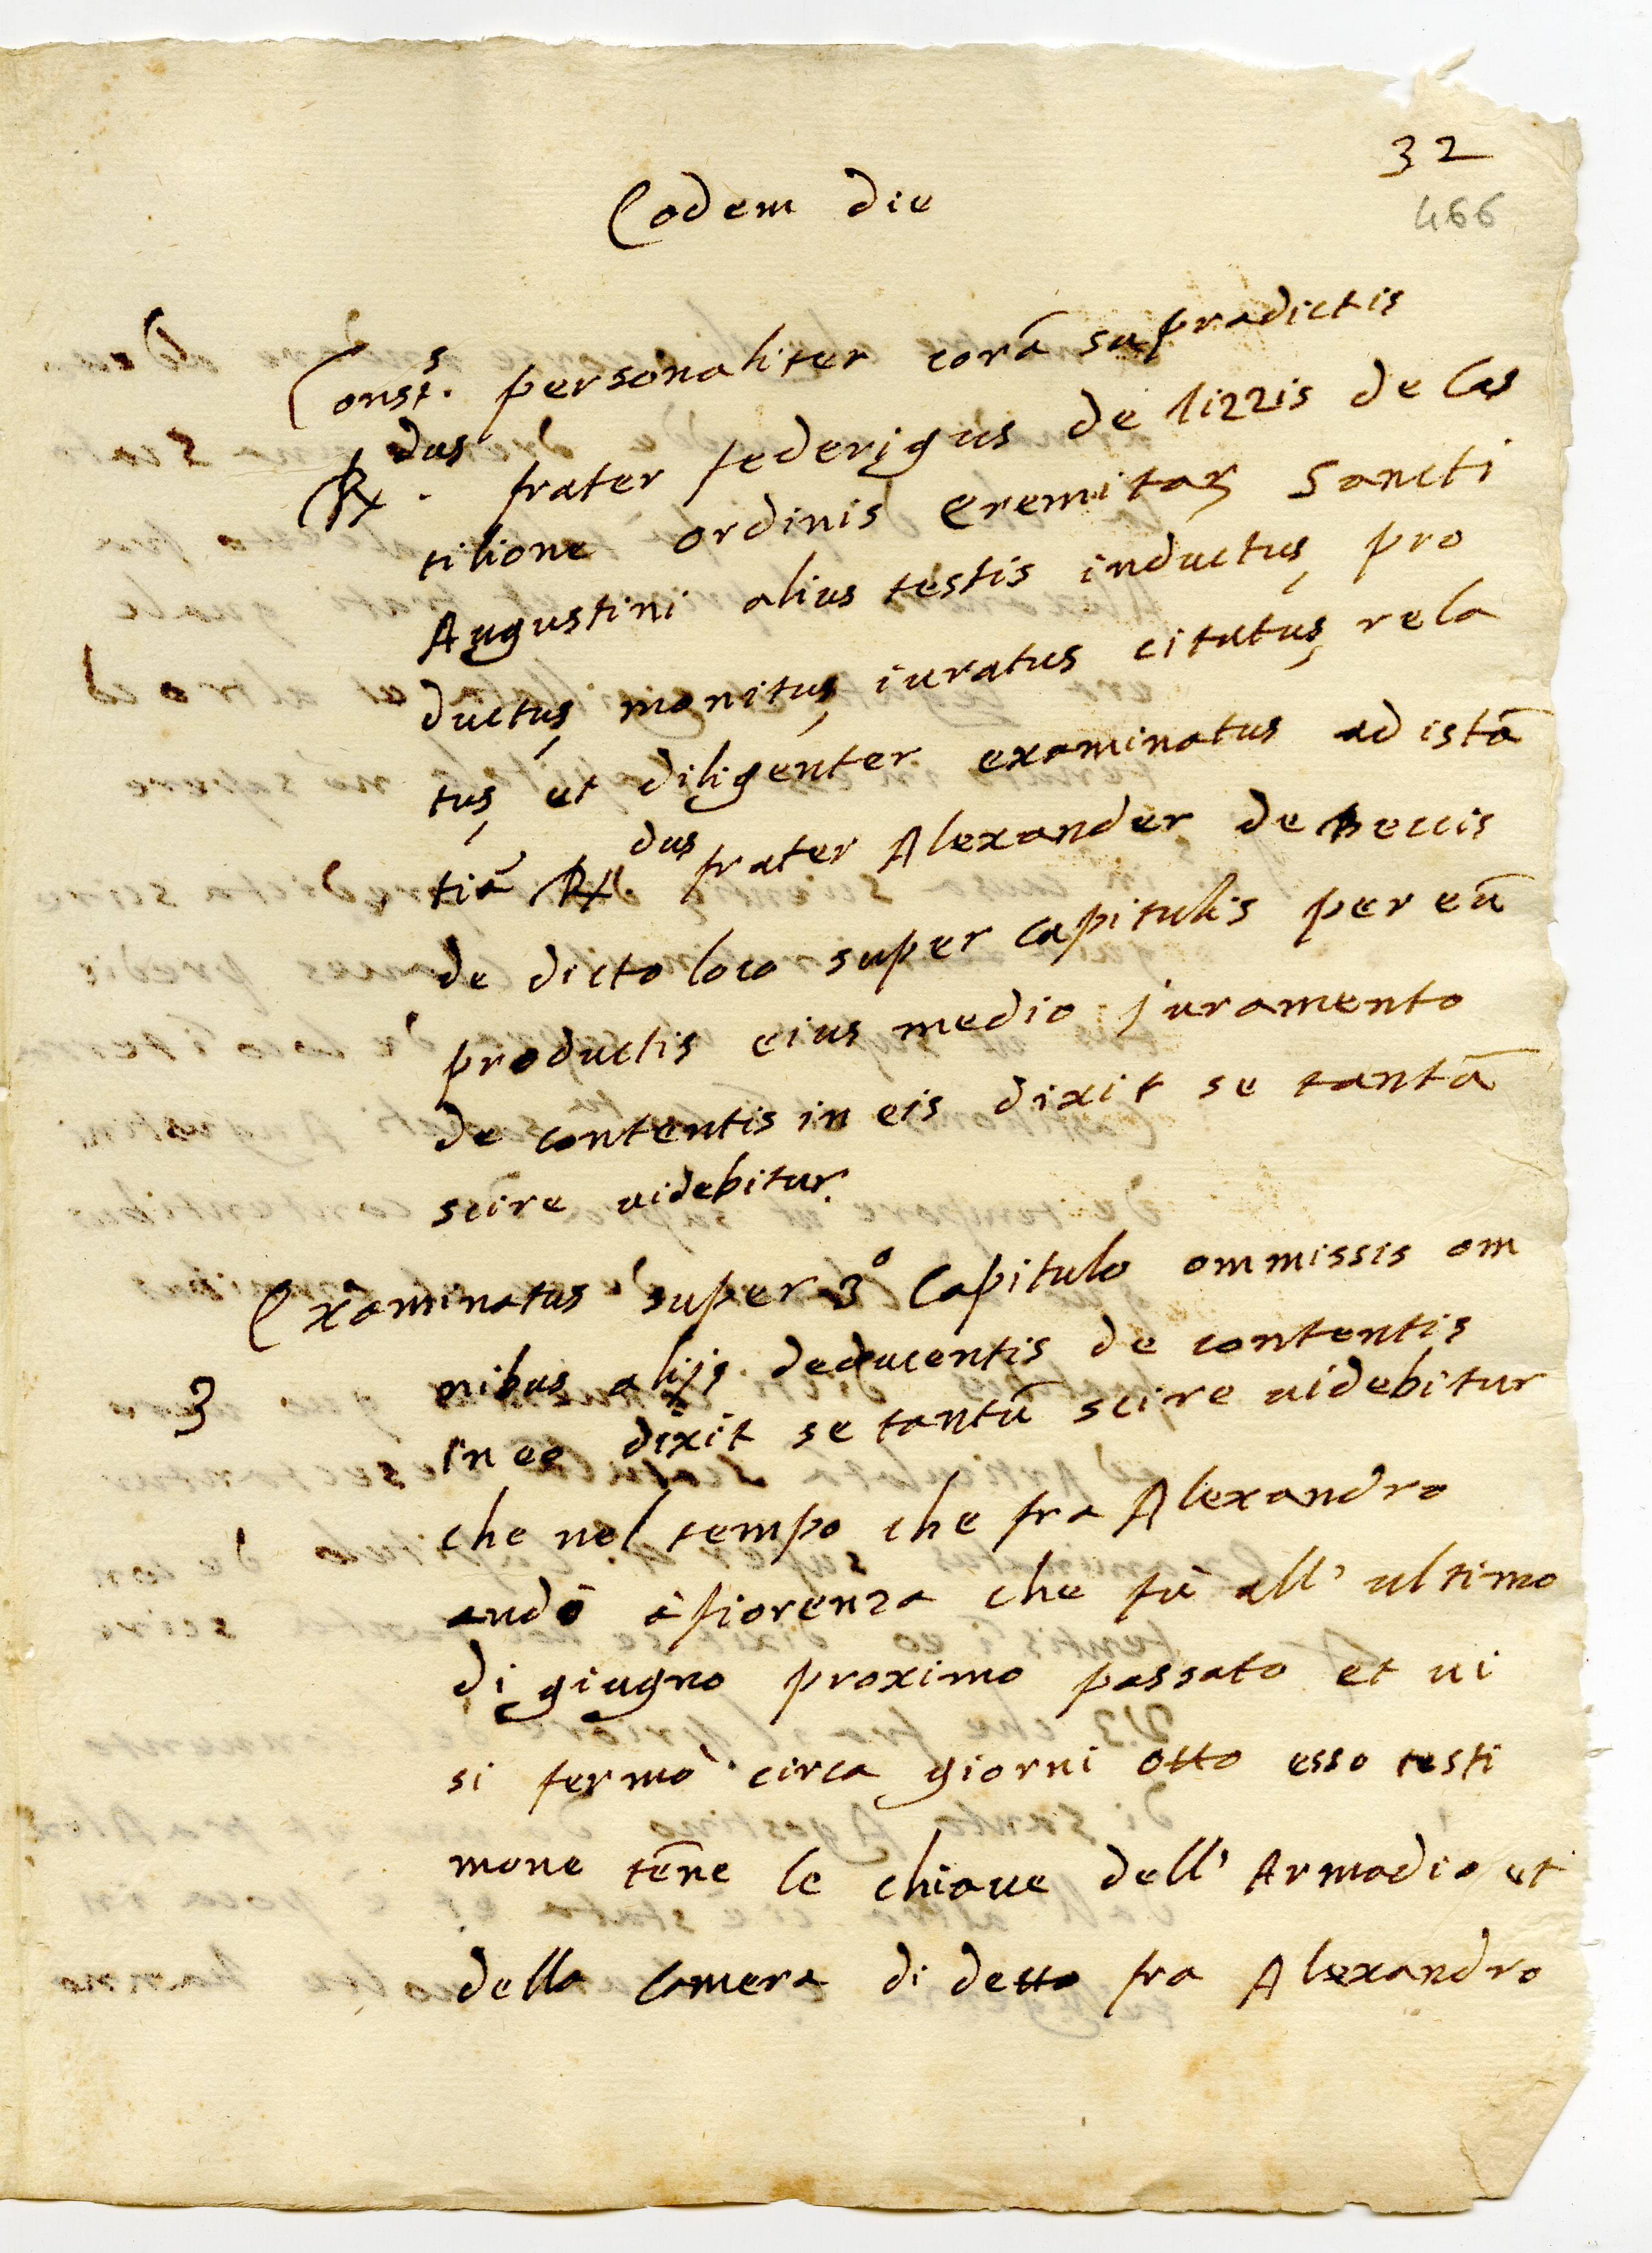 32
466
Eodem die
Const.s personaliter corā supradictis
R.dus frater federigus de lizzis de Cas
tilione ordinis eremitaꝝ Sancti
Augustini alius testis inductus pro
ductus monitus iuratus citatus rela
tus et diligenter examinatus ad istā
tiā R.dus frater Alexander de Beccis
de dicto loco super capitulis per eū
productis eius medio juramento
de contentis in eis dixit se tantā
scire uidebitur
Examinatus super 3º Capitulo ommissis om
3 nibus alijs deducentis de contentis
in eo dixit se tantū scire uidebitur
che nel tempo che fra Alexandro
andò à fiorenza che fù all' ultimo
di giugno proximo passato et ui
si fermò circa giorni otto esso testi
mone tēne le chiaue dell' Armadio et
della Camera di detto fra Alexandro